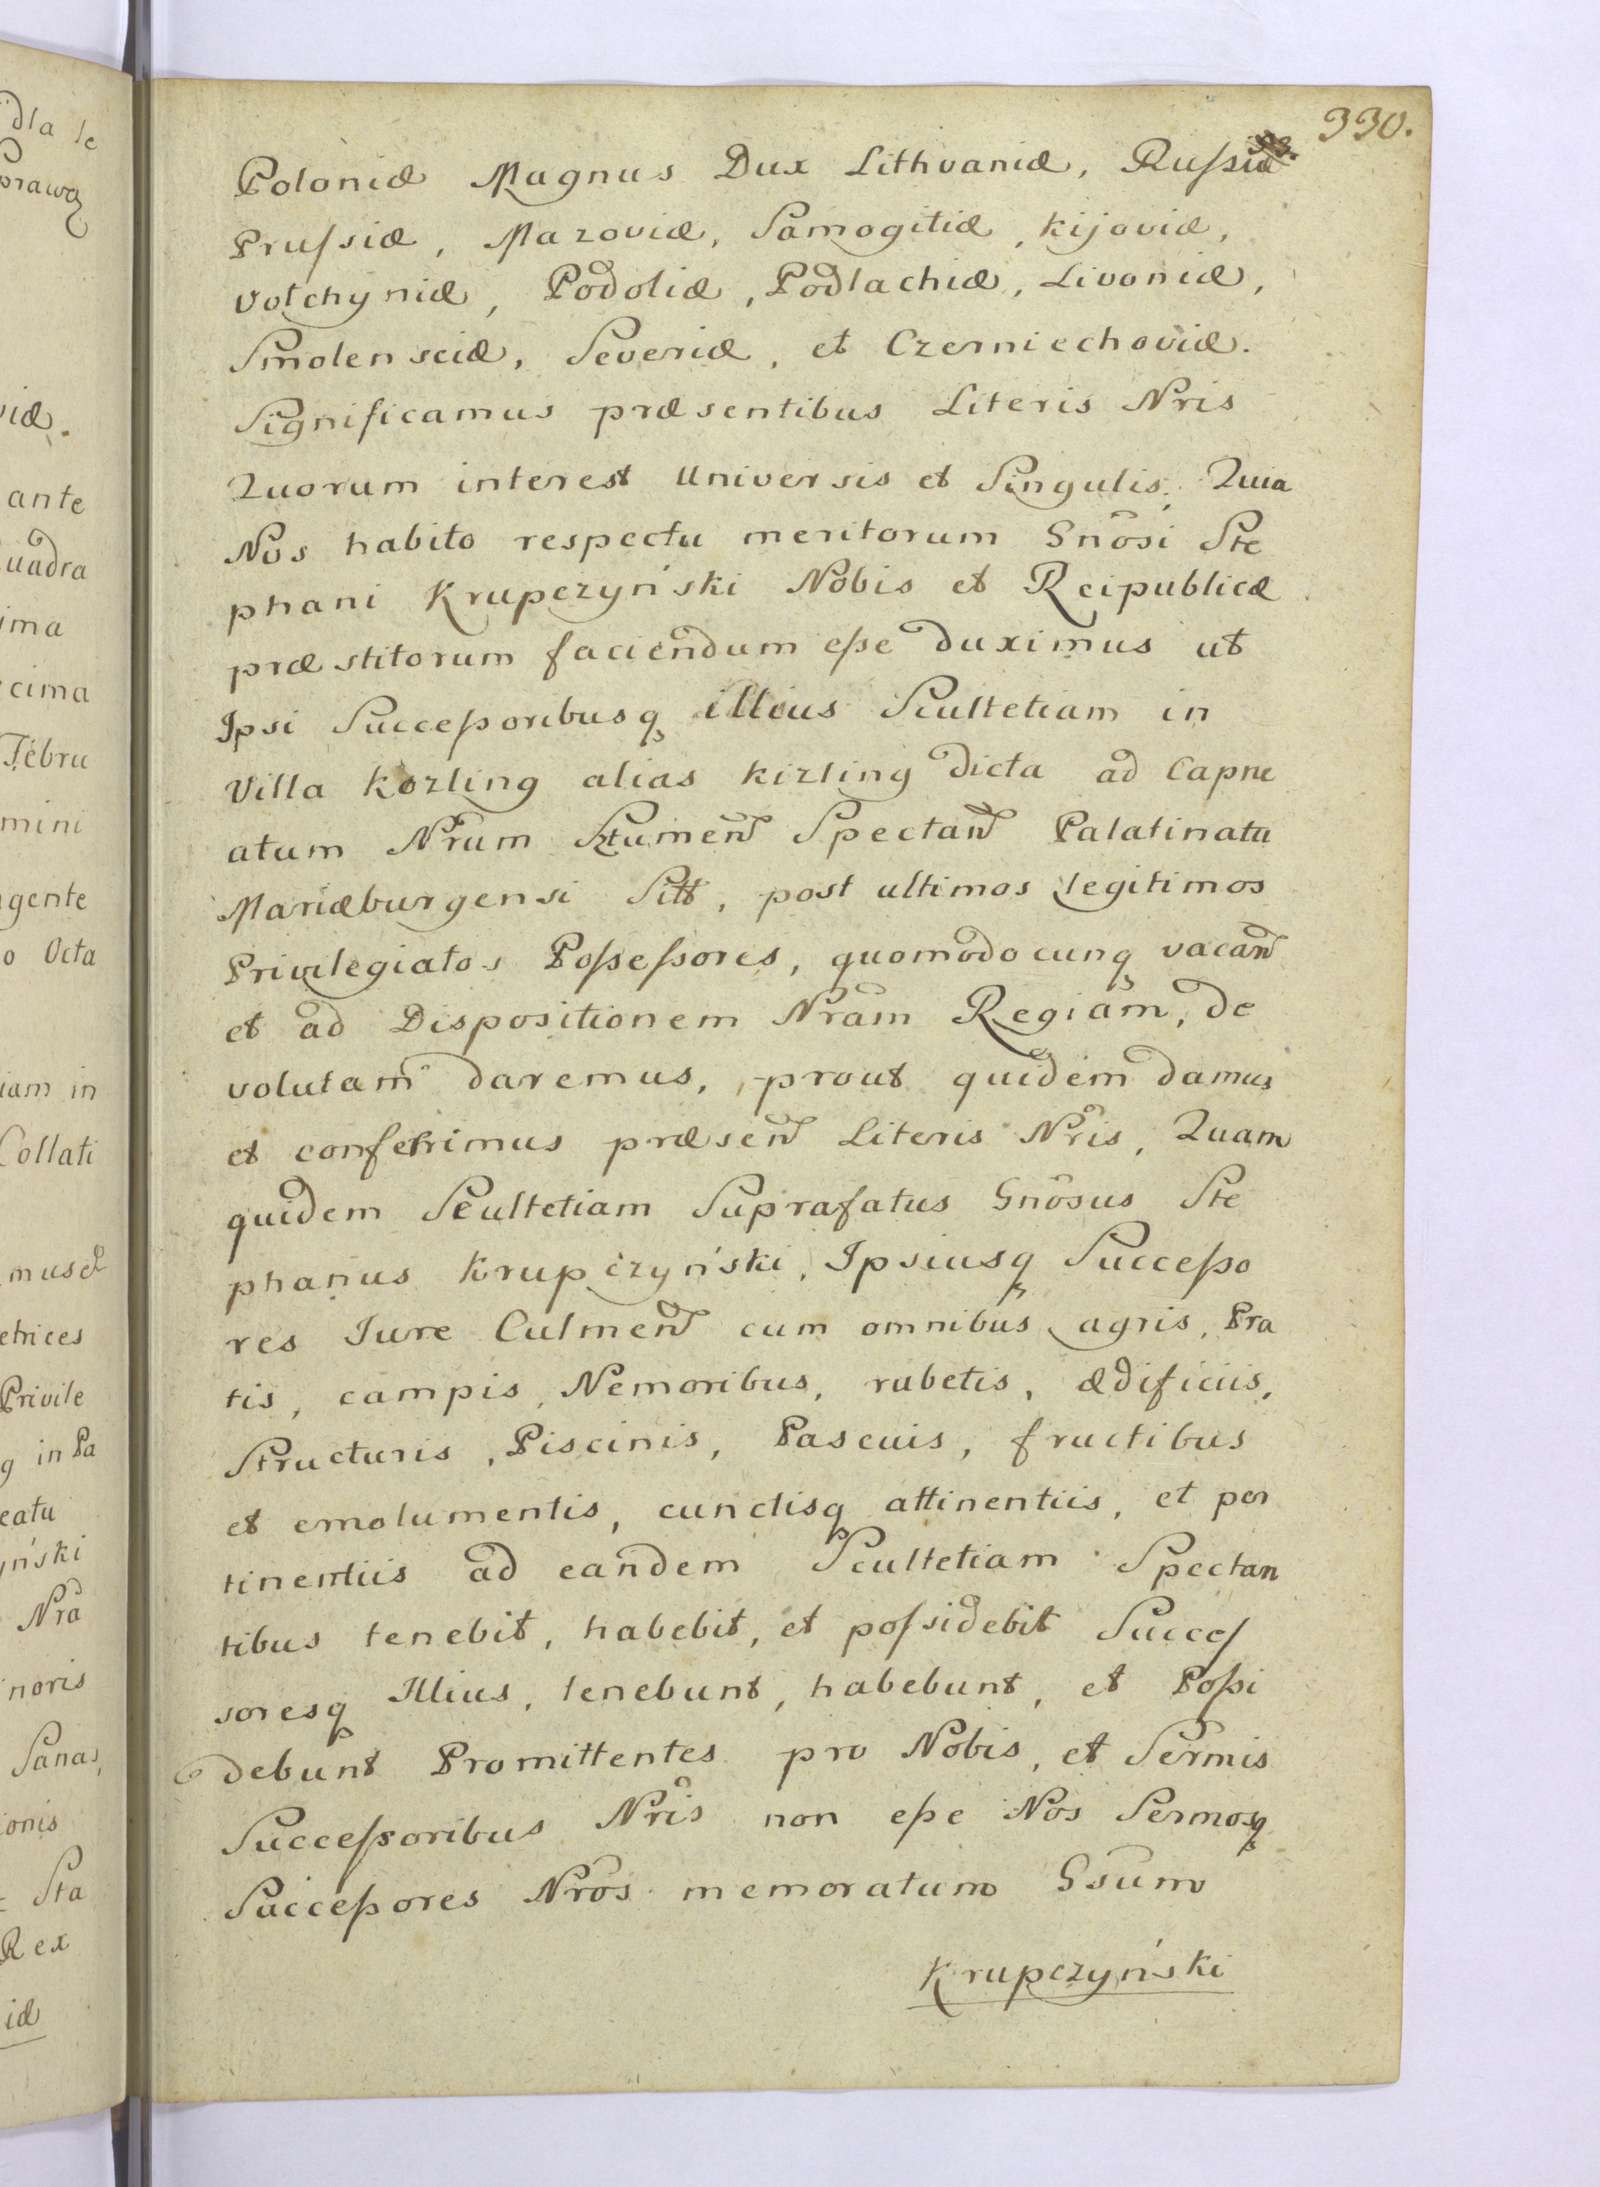 330.
Poloniæ Magnus Dux Lithvaniæ, Ruſsiæ
Pruſsiæ, Mazoviæ, Samogitiæ, Kijoviæ,
Volchyniæ, Podoliæ, Podlachiæ, Livoniæ,
Smolensciæ, Severiæ, et Czerniechoviæ.
Significamus præsentibus Literis Nris
Quorum interest Universis et Singulis, Quia
Nos habito respectu meritorum Gnôsi Ste
phani Krupczyński Nobis et Reipublicæ
præstitorum faciendum eſse duximus ut
Ipsi Succeſsoribusq illius Scultetiam in
Villa Kozling alias Kizling dicta ad Capne
atum Nrum Sztumen Spectan Palatinatu
Mariæburgensi Sitt, post ultimos legitimos
Privilegiatos Poſseſsores, quomodocunq vacan
et ad Dispositionem Nram Regiam, de
volutam daremus, prout quidem damus
et conferimus præsen Literis Nris, Quam
quidem Scultetiam Suprafatus Gnôsus Ste
phanus Krupczyński, Ipsiusq Succeſso
res Jure Culmen cum omnibus agris, Pra
tis, campis, Nemoribus, rubetis, ædificiis,
Structuris, Piscinis, Pascuis, fructibus
et emolumentis, cunctisq attinentiis, et per
tinentiis ad eandem Scultetiam Spectan
tibus tenebit, habebit, et poſsidebit Succeſ
soresq Illius, tenebunt, habebunt, et Poſsi
debunt Promittentes pro Nobis, et Sermis
Succeſsoribus Nris non eſse Nos Sermosq
Succeſsores Nros memoratum Gsum
Krupczyński
dla
Prawa
viæ.
ante
uadra
ima
cima
Febru
mini
gente
o Octa
iam in
Collati
mus et
etrices
Privile
q in Pa
eatu
yński
Nra
noris
Sanas,
ionis
Sta
Rex
iæ